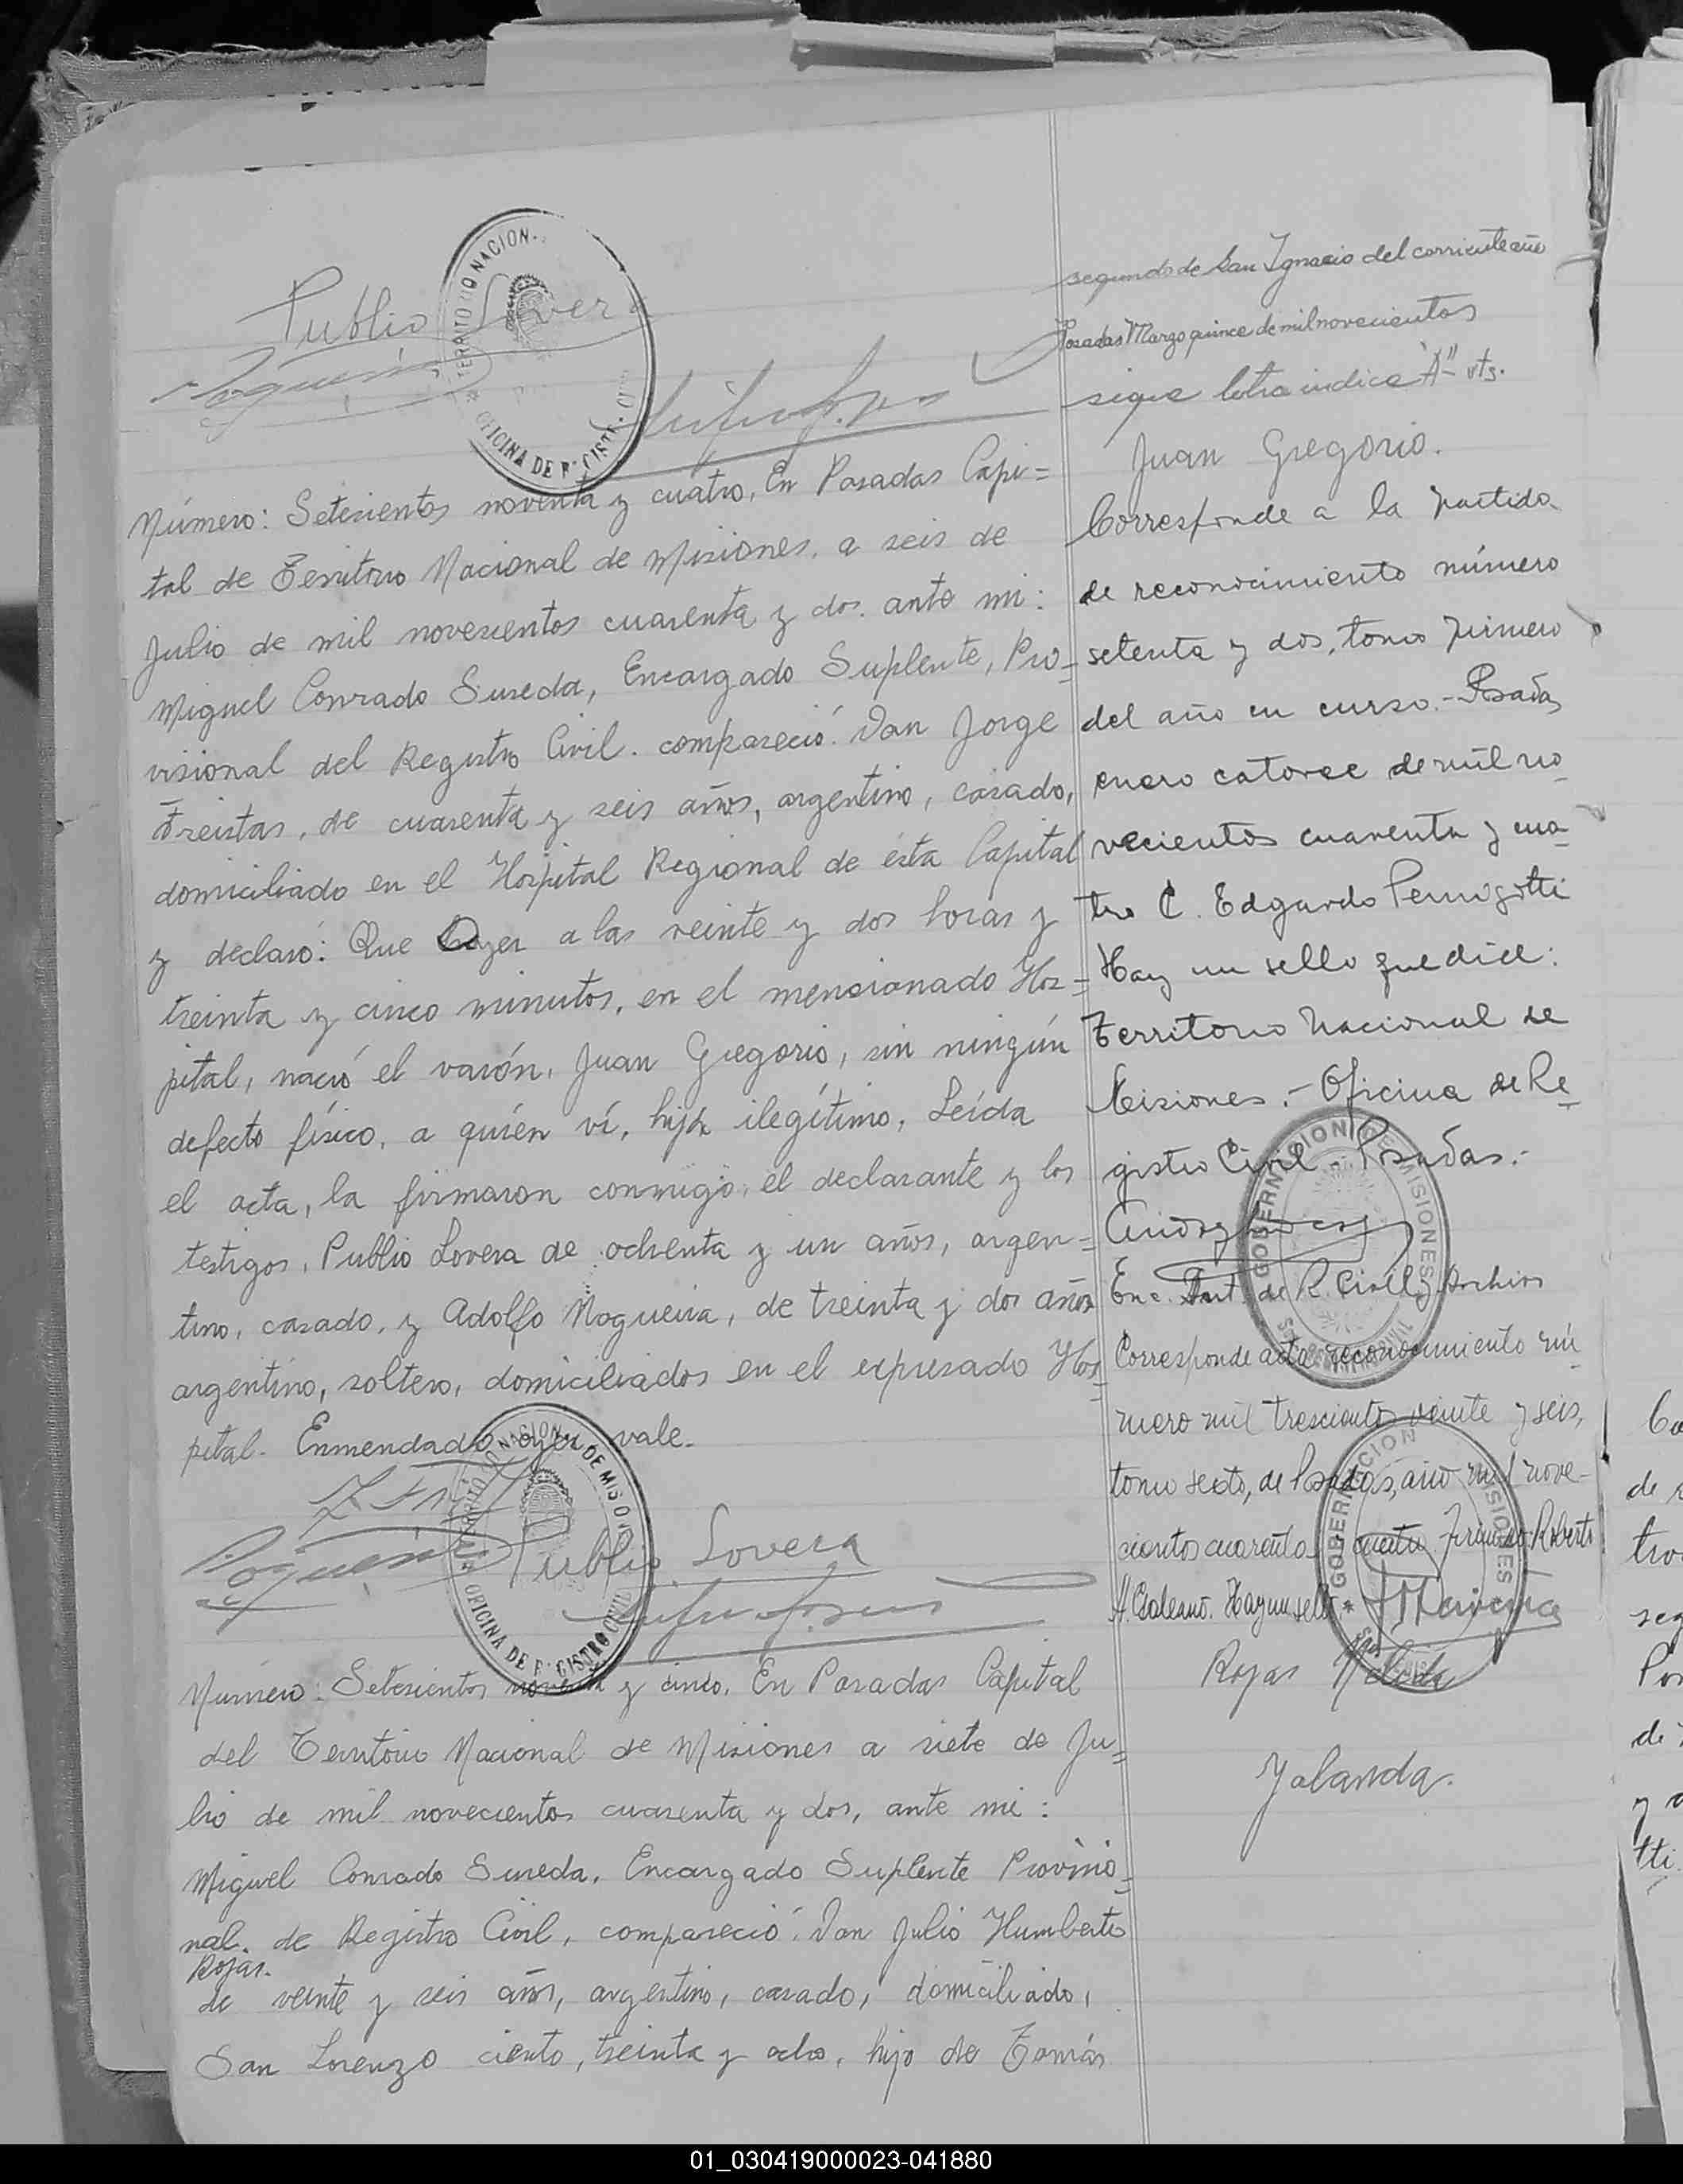 Publio Lovera
Nogueira
TERRITORIO NACION
OFICINA DE REGISTR
Número: Setecientos noventa y cuatro, En Posadas Capi=
tal de Territorio Nacional de Misiones, a seis de
Julio de mil novecientos cuarenta y dos. ante mi:
Miguel Conrado Sureda, Encargado Suplente, Pro=
visional del Registro Civil. compareció: Don Jorge
Freistas, de cuarenta y seis años, argentino, casado,
domiciliado en el Hospital Regional de ésta Capital
y declaró: Que Ayer a las veinte y dos horas y
treinta y cinco minutos, en el mencionado Hos=
pital, nació el varón, Juan Gregorio, sin ningún
defecto físico, a quién ví, hijo ilegítimo, Leída
el acta, la firmaron conmigo, el declarante y los
testigos, Publio Lovera de ochenta y un años, argen=
tino, casado, y Adolfo Nogueira, de treinta y dos años
argentino, soltero, domiciliados en el expresado Hos=
pital. Enmendado ayer vale.
TERRITORIO NACIONAL DE MISIONES
OFICINA DE REGISTRO CIVIL
Nogueira Publio Lovera
Número: Setecientos noventa y cinco, En Posadas Capital
del Territorio Nacional de Misiones a siete de Ju=
lio de mil novecientos cuarenta y dos, ante mi:
Miguel Conrado Sureda, Encargado Suplente Proviso=
nal. de Registro Civil, compareció: Don Julio Humberto
Rojas.
de veinte y seis años, argentino, casado, domiciliado,
San Lorenzo ciento, treinta y ocho, hijo de Tomás
segundo de San Ignacio del corriente año
Posadas Marzo quince de mil novecientos
sigue letra indice "A" vts.
Juan Gregorio.
Corresponde a la partida
de reconocimiento número
setenta y dos, tomo primero
del año en curso.- Posadas,
enero catorce de mil no
vecientos cuarenta y cua
tro C. Edgardo Pernigotti
Hay un sello que dice:
Territorio Nacional de
Misiones.- Oficina de Re
gistro Civil - Posadas.-
GOBERNACION DE MISIONES
Enc. de R. Civil y Archivo
Corresponde acta reconocimiento nú
mero mil trescientos veinte y seis,
tomo sexto, de Posadas, año mil nove-
cientos cuarenta cuatro Firmado. Roberto
A. Galeano. Hay un sello
GOBERNACION MISIONES
Rojas Nelida
Yolanda.
Co
de r
tro
seg
Pos
de
y
tti.
01_030419000023-041880